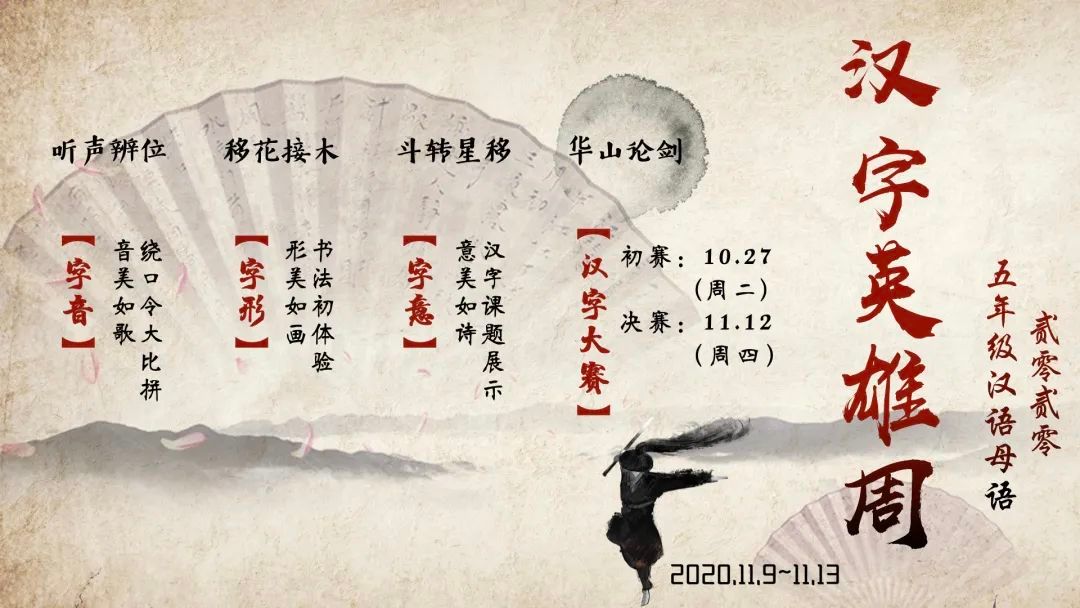 汉字英雄周
贰零贰零
五年级汉语母语
听声辨位
【字音】
绕口令大比拼
音美如歌
移花接木
【字形】
书法初体验
形美如画
斗转星移
【字意】
汉字课题展示
意美如诗
华山论剑
【汉字大赛】
初赛：10.27
（周二）
决赛：11.12
（周四）
2020.11.9~11.13